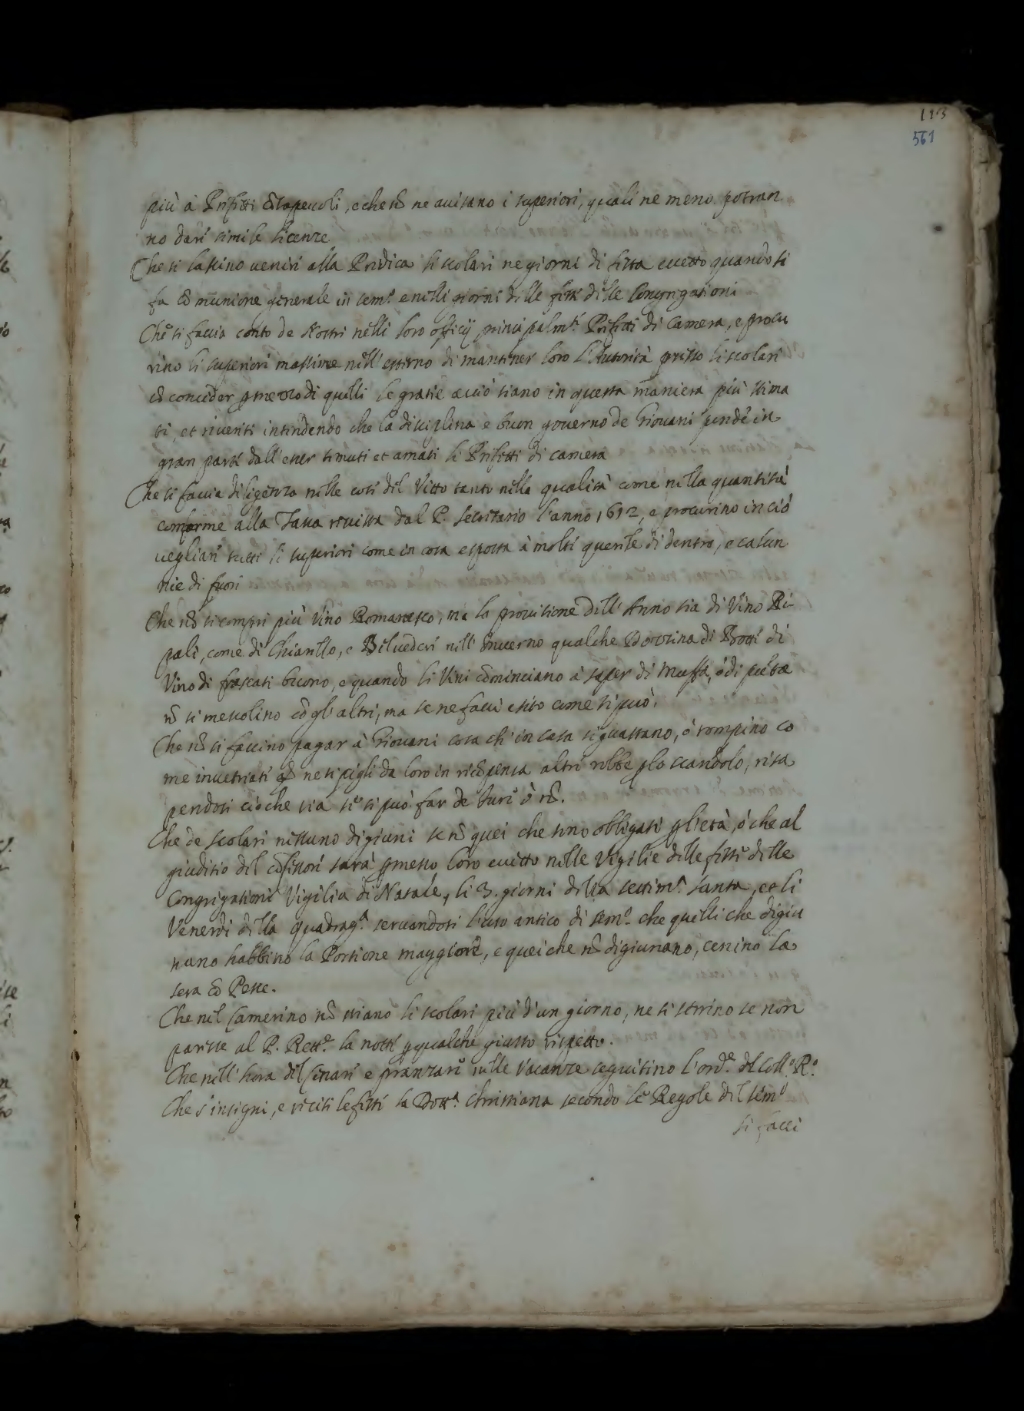 113
561
più à Prefetti, e che nõ ne avisano i superiori, quali ne meno potran
no dare simile licenze.
Che si lassino venire alla Predica li scolari ne giorni di festa eccetto quando si
fa Cõmunione generale in sem.º e nelli giorni delle feste delle Congregationi
Che si faccia conto de Nostri nelli loro officij, principalm.te Prefetti di Camera, e procu
rino li superiori massime nell'esterno di mantener loro l'Autorità presso li scolari
cõ conceder p mezzo di quelli le gratie acciò siano in questa maniera più stima
ti et riveriti intendendo che la disciplina e buon governo de Giovani pende in
gran parte dall'esser temuti et amati li Prefetti di camera
Che si faccia diligenza nelle cose del Vitto tanto nella qualità come nella quantità
conforme alla Tassa rivista dal P. Secretario l'anno 1612, e procurino in ciò
vegliare tutti li superiori come in cosa esposta à molti querele di dentro, e calun
nie di fuori
Che nõ si compri più Vino Romanesco, ma la provisione dell'Anno sia di Vino Ri
pale, come di Chiantello, e Belvedere nell'Inverno qualche Dozzina di Botti di
Vino di frascati buono, e quando li Vini cõminciano à saper di muffa, ò di
nõ si mescolino cõ gl'altri, ma se ne facci esito come si può.
Che nõ si faccino pagar à Giovani cosa ch'in casa si guastano, ò rompino co
me invetriati ne si pigli da loro in ricõpensa altre robbe p lo scandolo, risa
pendosi ciò che sia se si può far de Jure ò nõ.
Che de scolari nissuno digiuni se nõ quei che sono obbligati p l'età, ò che al
giuditio del cõfessore sarà pmesso loro eccetto nelle Vigilie delle feste delle
Congregationi Vigilia di Natale, li 3. giorni della settim.ª santa, et li
Venerdi della quadrag.ª servandosi l'uso antico di sem.º che quelli che digiu
nano habbino la Portione maggiore, e quei che nõ digiunano, cenino la
sera cõ Pesce.
Che nel Camerino nõ stiano li scolari più d'un giorno, ne si serrino se non
paresse al P. Rett.re la notte p qualche giusto rispetto.
Che nell'hora del Cenare e pranzare nelle Vacanze seguitino l'ord.e del Coll.º R.º
Che s'insegni, e reciti le feste la Dott.ª Christiana secondo le Regole del sem.º
si facci